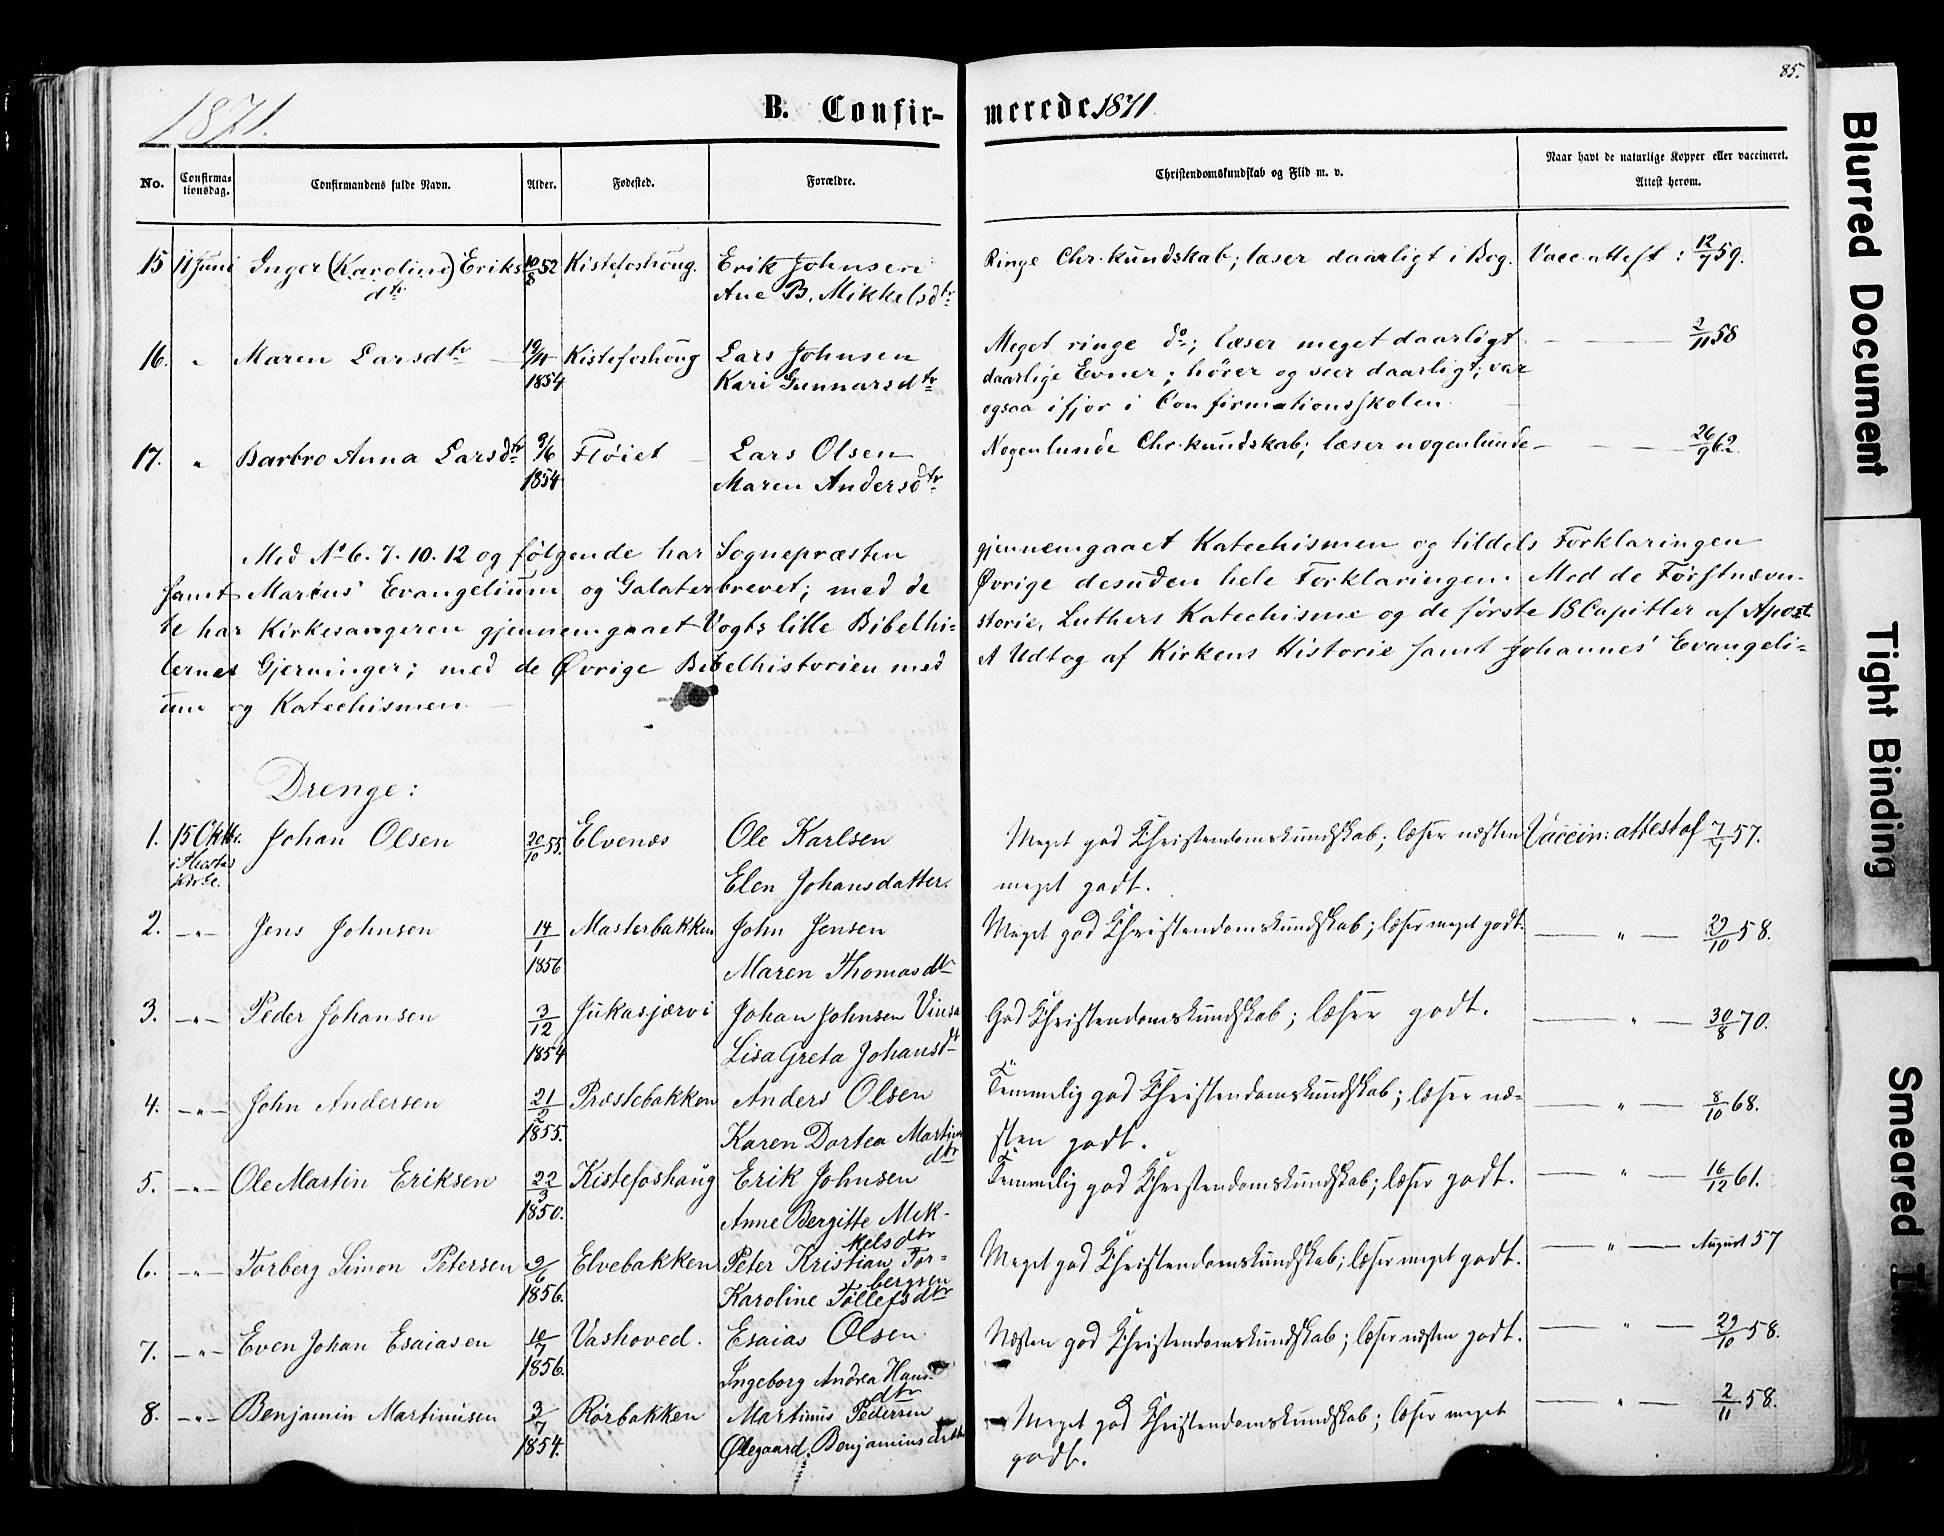 85.
1871.
B. Confirmerede 1871.
No. Confirmationsdag. Confirmandens fulde Navn. Alder. Fødested. Forældre. Christendomskundskab og Flid m. v. Naar havt de naturlige Kopper eller vaccineret. Attest herom.
15 11 Juni Inger (Karoline) Eriks 10/8 52 Kistefoshoug. Erik Johnsen Ringe Chr. kundskab; læser daarligt i Bog. Vacc. attest : 12/7 59.
dtr Ane B. Mikkelsdtr
16. " Maren Larsdtr 19/11 Kistefoshoug Lars Johnsen Meget ringe do; læser meget daarligt — — 2/11 58
1854 Kari Gunnarsdtr daarlige Evner; hører og seer daarligt; var
ogsaa ifjor i Confirmationsskolen
17. " Barbro Anna Larsdtr 9/6 Fløiet Lars Olsen Nogenlunde Chr. kundskab; læser nogenlunde — — 26/9 62.
1854 Maren Andersdtr
Med No 6. 7. 10. 12 og følgende har Sognepræsten gjennemgaaet Katechismen og tildels Forklaringen
samt Marcus' Evangelium og Galaterbrevet; med de Øvrige desuden hele Forklaringen. Med de Førstnævn-
te har Kirkesangeren gjennemgaaet Vogts lille Bibelhi- storie, Luthers Katechisme og de første 18 Capitler af Apost
lernes Gjerninger; med de Øvrige Bibelhistorien med et Udtog af Kirkens Historie samt Johannes' Evangeli-
um og Katechismen.
Drenge:
1. 15 Oktbr. Johan Olsen 20/10 55. Elvenes Ole Karlsen Meget god Christendomskundskab; læser næsten Vaccin: attest af 7/7 57.
Elen Johansdatter. meget godt.
2. — " — Jens Johnsen 14/1 Masterbakken John Jensen Meget god Christendomskundskab; læser meget godt. — " — 29/10 58.
1856 Maren Thomasdtr
3. — " — Peder Johansen 3/12 Jukasjærvi Johan Johnsen God Christendomskundskab; læser godt. — " — 30/8 70.
1854 Lisa Greta Johansdtr
4. — " — John Andersen 21/2 Præstebakken Anders Olsen Temmelig god Christendomskundskab; læser næ- — " — 8/10 68.
1855. Karen Dortea Martins sten godt.
dtr
5. — " — Ole Martin Eriksen 22/3 Kistefoshaug Erik Johnsen Temmelig god Christendomskundskab; læser godt. — " — 16/12 61.
1850. Anne Bergitte Mik-
kelsdtr
6. — " — Torberg Simon Petersen 9/6 Elvebakken Peter Kristian Tor- Meget god Christendomskundskab; læser meget godt. — " — August 57
bergsen
1856. Karoline Tollefsdtr
7. — " — Even Johan Esaiasen 10/7 Vashoved. Esaias Olsen Næsten god Christendomskundskab; læser næsten godt. — " — 29/10 58.
1856. Ingeborg Andrea Hans-
dtr
8. — " — Benjamin Martinusen 3/7 Rørbakken Martinus Pedersen Meget god Christendomskundskab; læser meget — " — 2/11 58.
1854. Ølegaard Benjaminsdatter godt.
Blurred Document
Tight Binding
Smeared